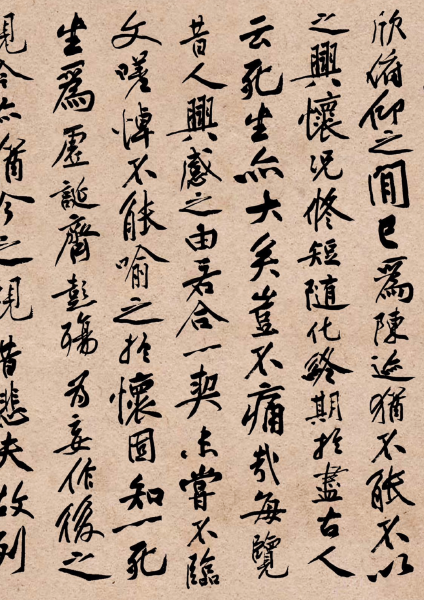 欣俯仰之間已為陳迹猶不能不以
之興懷况修短随化終期於盡古人
云死生亦大矣豈不痛哉每覽
昔人興感之由若合一契未嘗不臨
文嗟悼不能喻之於懷固知一死
生爲虛誕齊彭殤為妄作後之
視今亦猶今之視昔悲夫故列